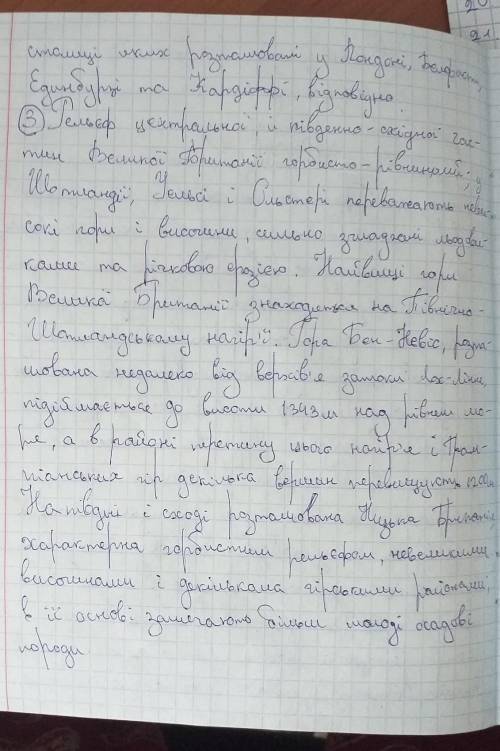 20
21
столиці яких розташовані у Лондоні, Белфасті,
Единбурзі та Кардіффі, відповідно.
③ Рельєф центральної й південно-східної час-
тин Великої Британії горбисто-рівнинний; у
Шотландії, Уельсі і Ольстері переважають неви-
сокі гори і височини, сильно згладжені льодови-
ками та річковою ерозією. Найвищі гори
Великої Британії знаходяться на Північно-
Шотландському нагір'ї. Гора Бен-Невіс, розта-
шована недалеко від верхів'я затоки Лох-Лінн,
підіймається до висоти 1343м над рівнем мо-
ря, а в районі перетину цього нагір'я і Грам-
піанських гір декілька вершин перевищують 1200м
На півдні і сході розташована Низька Британія
характерна горбистим рельєфом, невеликими
височинами і декількома гірськими районами,
в її основі залягають більш молоді осадові
породи